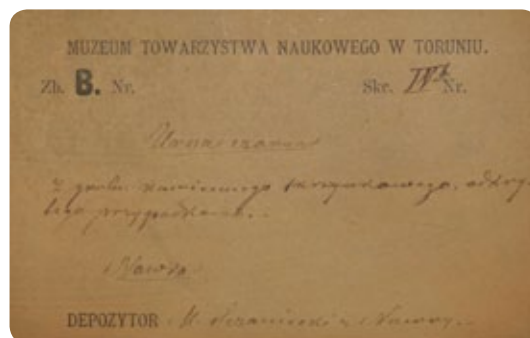 MUZEUM TOWARZYSTWA NAUKOWEGO W TORUNIU.
Zb. B. Nr. Skr. IVb Nr.
Urna czarna
z grobu kamiennego skrzynkowego, odkry-
tego przypadkiem.
Nawra
DEPOZYTOR M. Sczaniecki z Nawry.